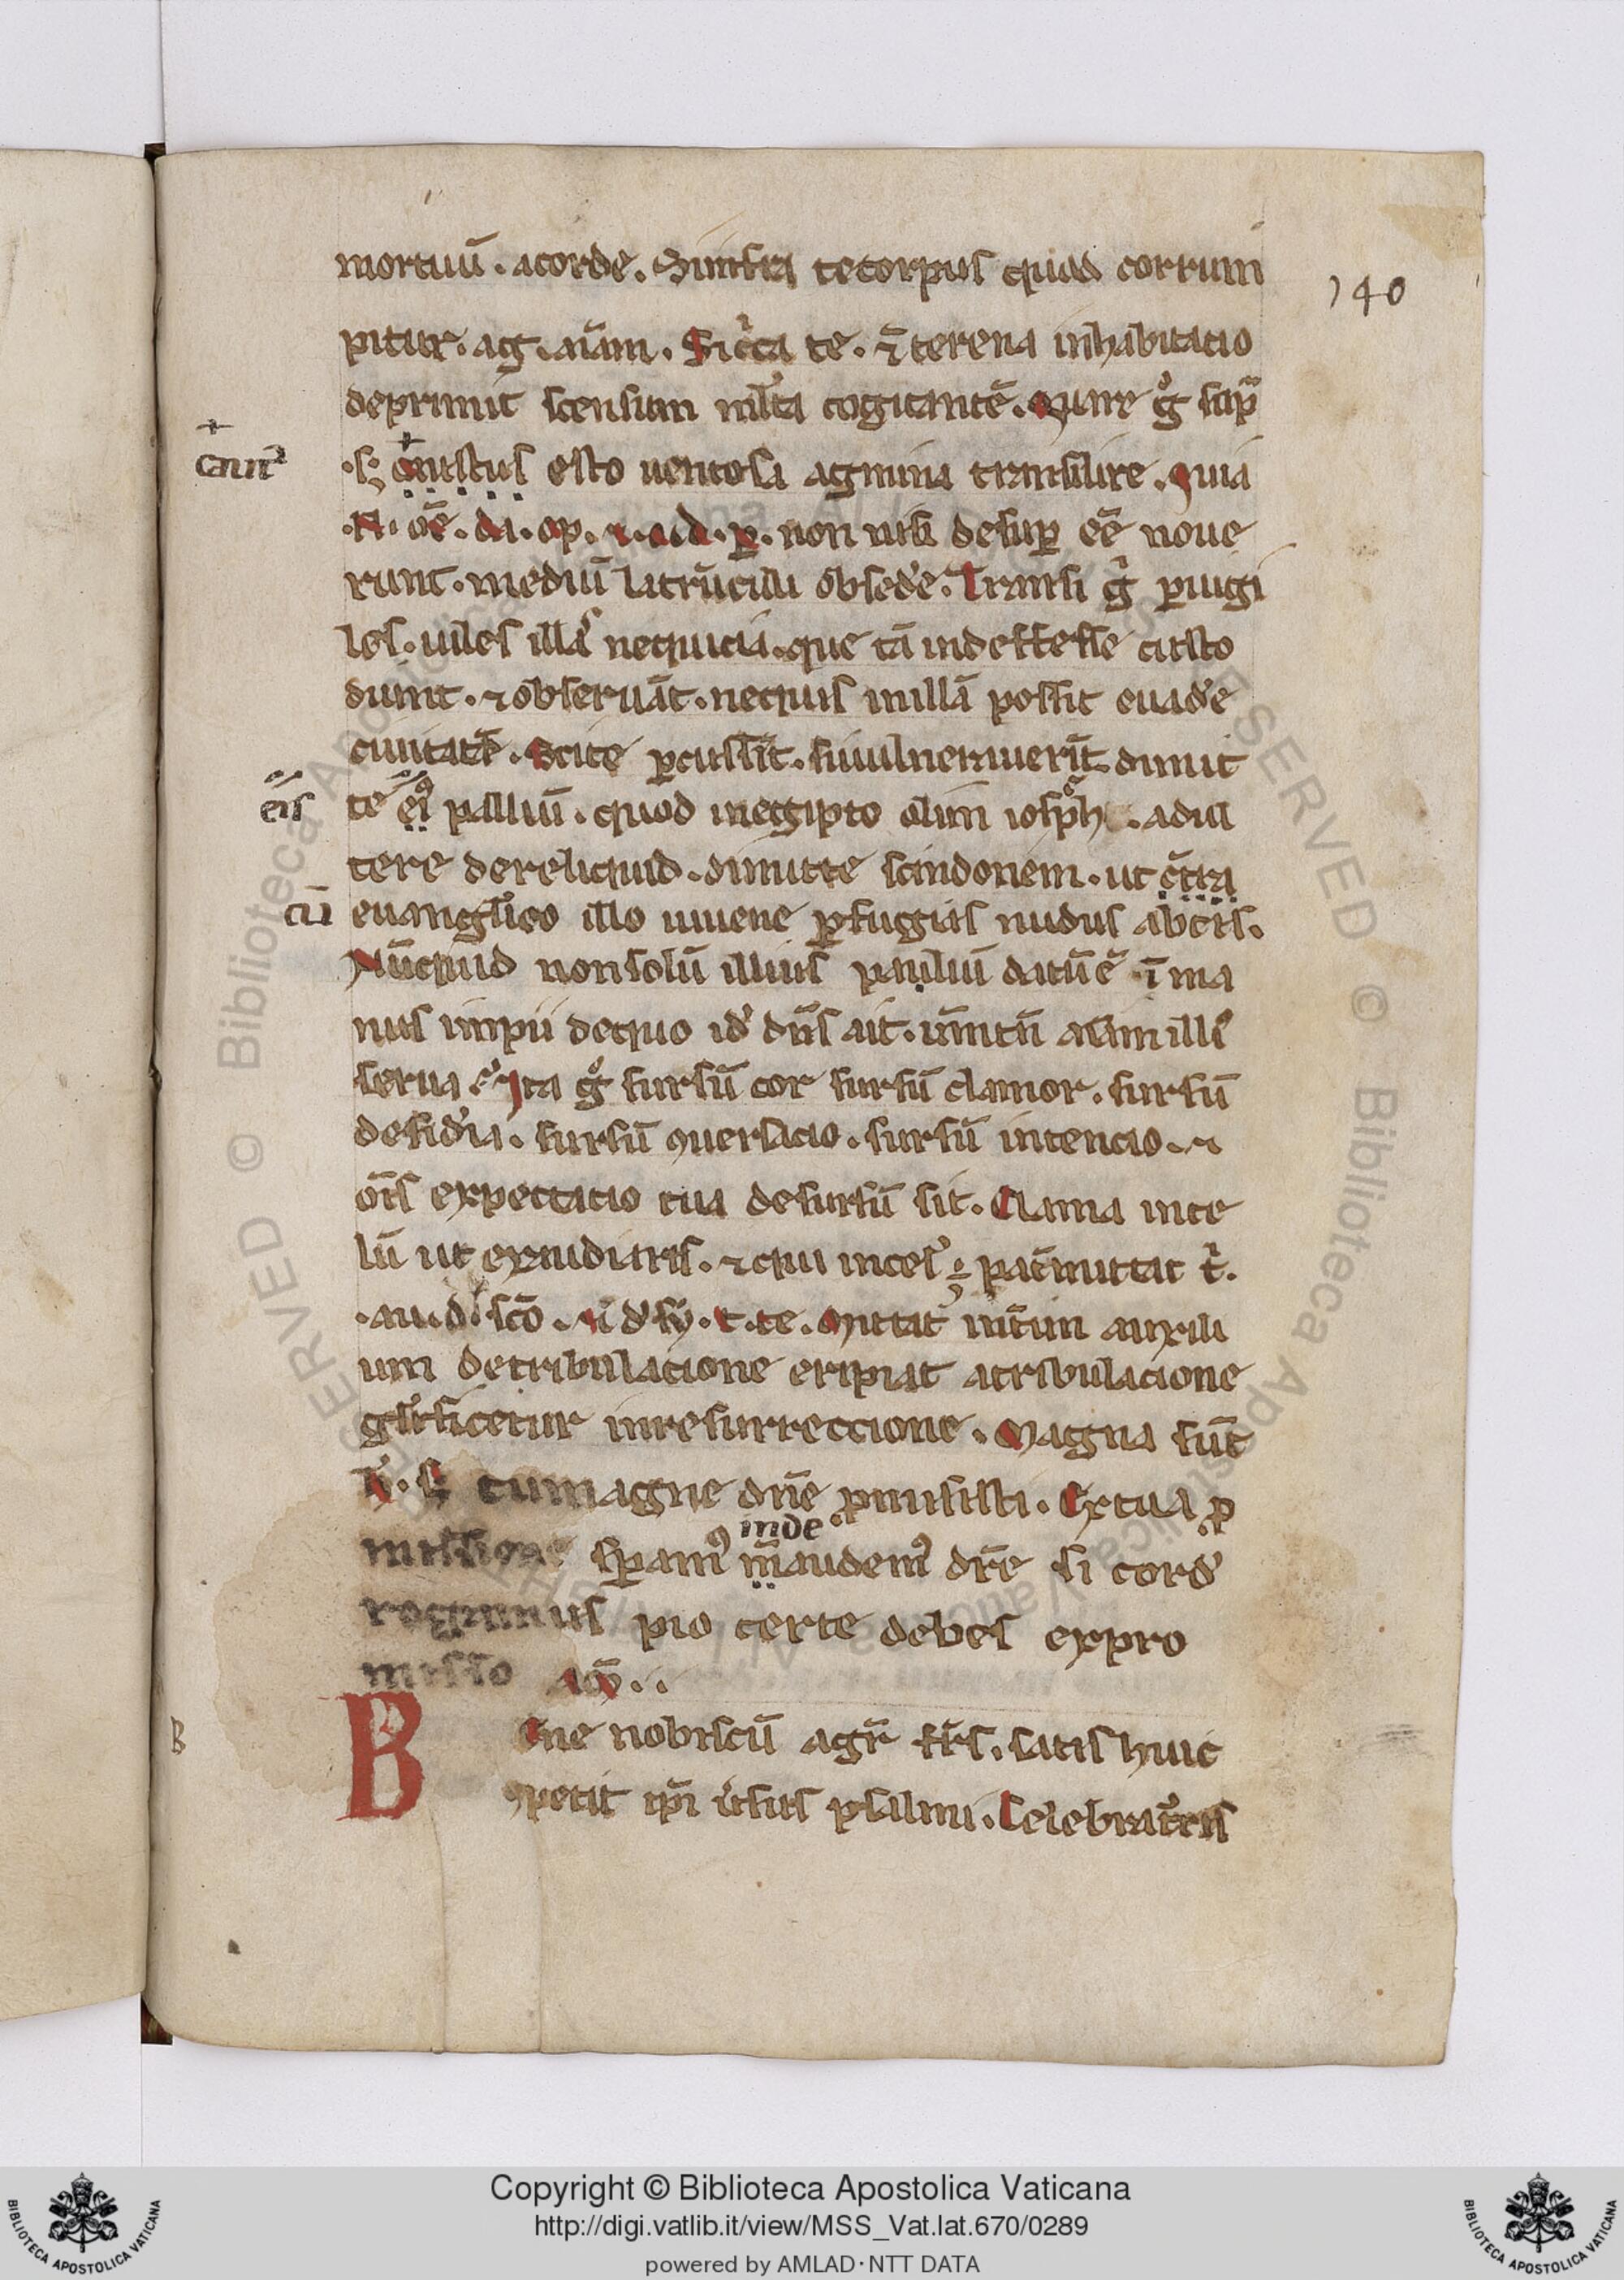 mortuū · acorde. Siinfra te corpus quod corrum
pitur · ag · aīam. Si cͥca te · ⁊ terena inhabitatio
deprimit scensum ml̓ta cogitantē. Quare gͦ supᷓ
caut²
esto uentosa agmina transilire. Quia
·N· oē. da. op. non nisi desup̲ eē noue
runt · mediū latrūculi obsedͤe. Transi gͥ p̲uigi
les · uiles illaˢ nequicia · que tā indeffesse custo
diunt · ⁊ obseruāt · nequis inillā possit euadͤe
ciuitatē. Scite p̲cusser̄t · siuulnerauerīt dimit
eis
te ei⁹ palliū · quod inegipto olim ioseph · adul
tere dereliquid · dimitte scindonem · ut ꝯ̄tra
cū
euangl̓ico illo iuuene p̲fugias nudus abeis.
Nūquid nonsolū illius palliū datū ē ī ma
nus impii dequo id̓ dn̄s ait · u̅mtn̄ aīam illi⁹
serua. Ita gͦ sursū cor sursū clamor. sursū
desid̓ia. sursū ꝯuersacio. sursū intencio. ⁊
om̄s expectatio tua desursū sit. Clama ince
lū ut exaudiaris. ⁊ qui inceł ÷ pat̓ mittat tͥ.
·au. d̓. scō. Mittat int̓im auxili
um detribulacione eripiat atribulacione
gl̓ificetur inresurreccione. Magna sūt
tumagne dn̄e ꝓmisisti. Ex tua ꝓ
inde
missione sp̲am⁹ m̄audem⁹ dīc̄e si cord̓
rogamus pio certe debes expro
misso am̄
140
B
B
Ene nobiscū agit̄ fr̄s. satis huic
ꝯpetit tp̄i u̓sus psalmi. Celebrat̓ris
Copyright © Biblioteca Apostolica Vaticana
http://digi.vatlib.it/view/MSS_Vat.lat.670/0289
powered by AMLAD·NTT DATA
BIBLIOTECA APOSTOLICA VATICANA
BIBLIOTECA APOSTOLICA VATICANA